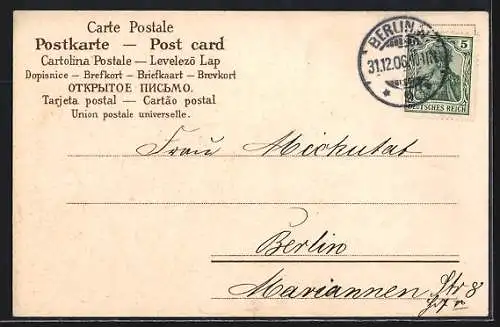 Carte Postale
Postkarte — Post card
Cartolina Postale — Levelező Lap
Dopisnice — Brefkort — Briefkaart — Brevkort
ОТКРЫТОЕ ПИСЬМО.
Tarjeta postal — Cartão postal
Union postale universelle.
BERLIN
31.12.06
5
DEUTSCHES REICH
Frau Mickutat
Berlin
Mariannen Str 8